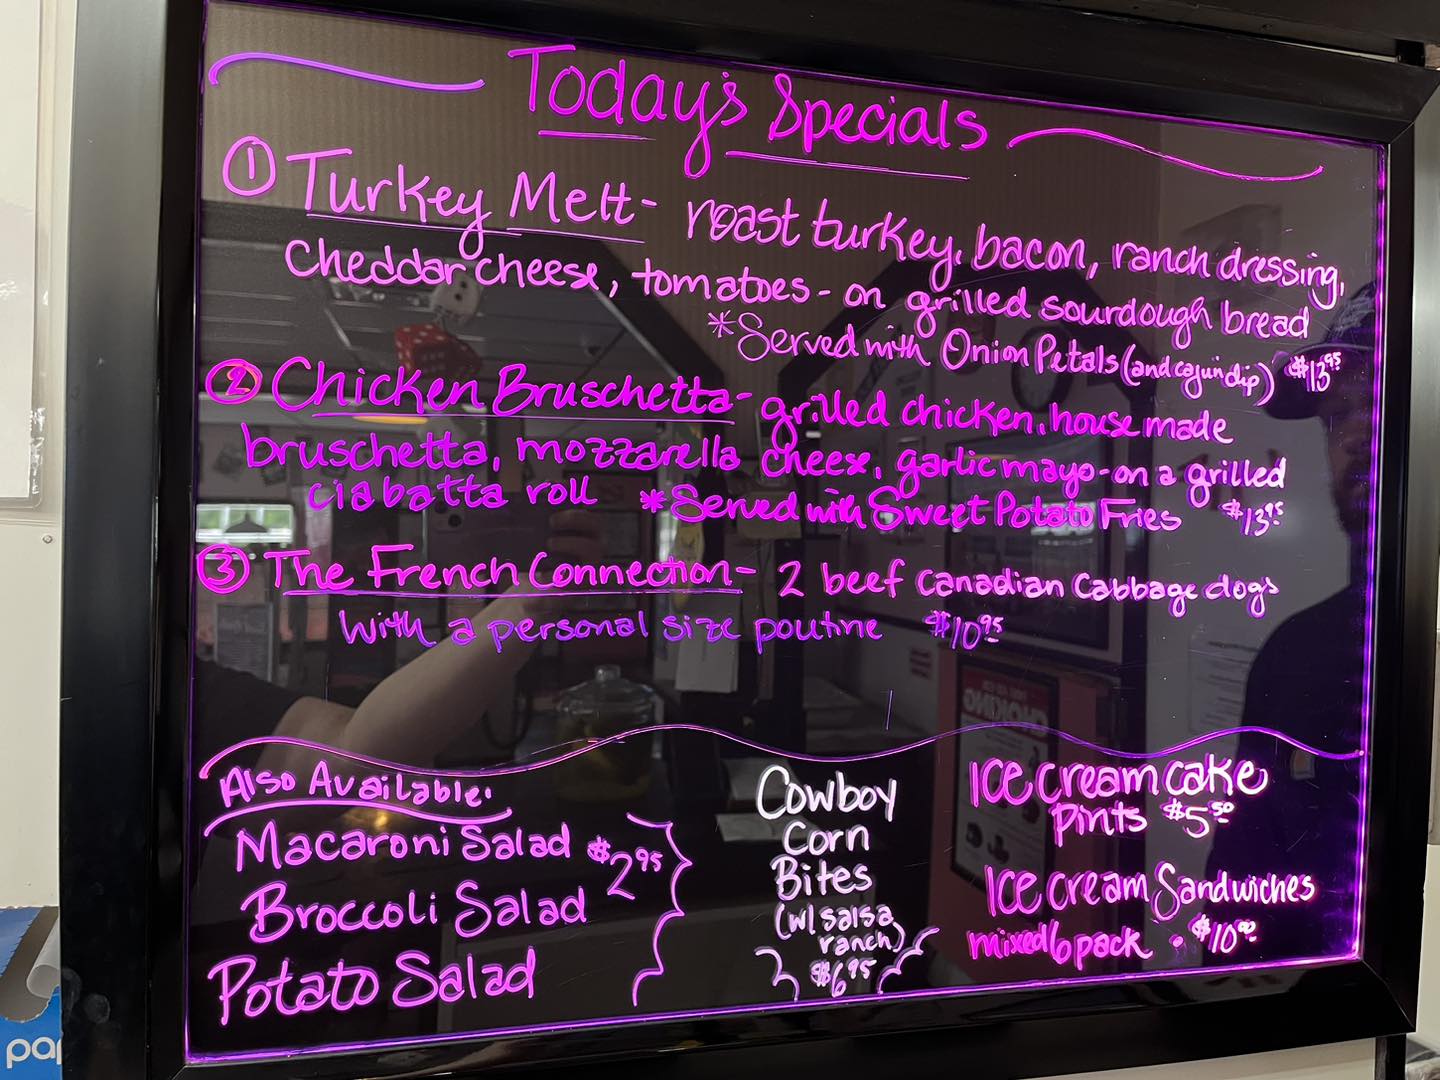 Today's Specials
① Turkey Melt - roast turkey, bacon, ranch dressing,
Cheddar cheese, tomatoes - on grilled sourdough bread
*Served with Onion Petals (and cajun dip) $13.95
② Chicken Bruschetta - grilled chicken, house made
bruschetta, mozzarella cheese, garlic mayo - on a grilled
ciabatta roll *Served with Sweet Potato Fries $13.95
③ The French Connection - 2 beef Canadian Cabbage dogs
with a personal size poutine $10.95
Also Available:
Macaroni Salad $2.95
Broccoli Salad
Potato Salad
Cowboy
Corn
Bites
(w/ salsa
ranch)
$6.95
Ice cream cake
Pints $5.50
Ice cream Sandwiches
mixed 6 pack • $10.00
CHOKING
pa